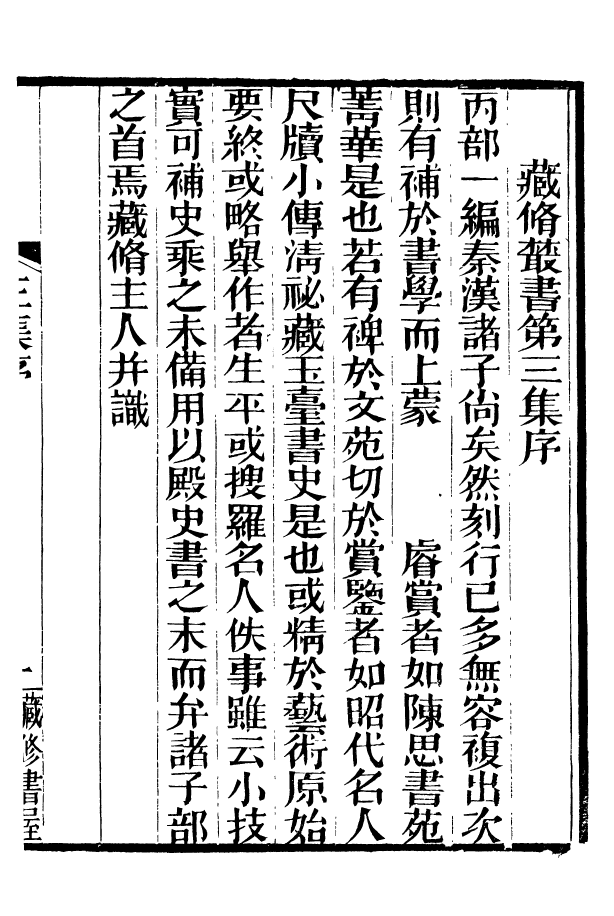 藏脩叢書第三集序
丙部一編秦漢諸子尙矣然刻行已多無容複出次
則有補於書學而上蒙 睿賞者如陳思書苑
菁華是也若有裨於文苑切於賞鑒者如昭代名人
尺牘小傳淸祕藏玉臺書史是也或精於藝術原始
要終或略舉作者生平或搜羅名人佚事雖云小技
實可補史乘之未備用以殿史書之末而弁諸子部
之首焉藏脩主人幷識
三集序
一
藏修書屋